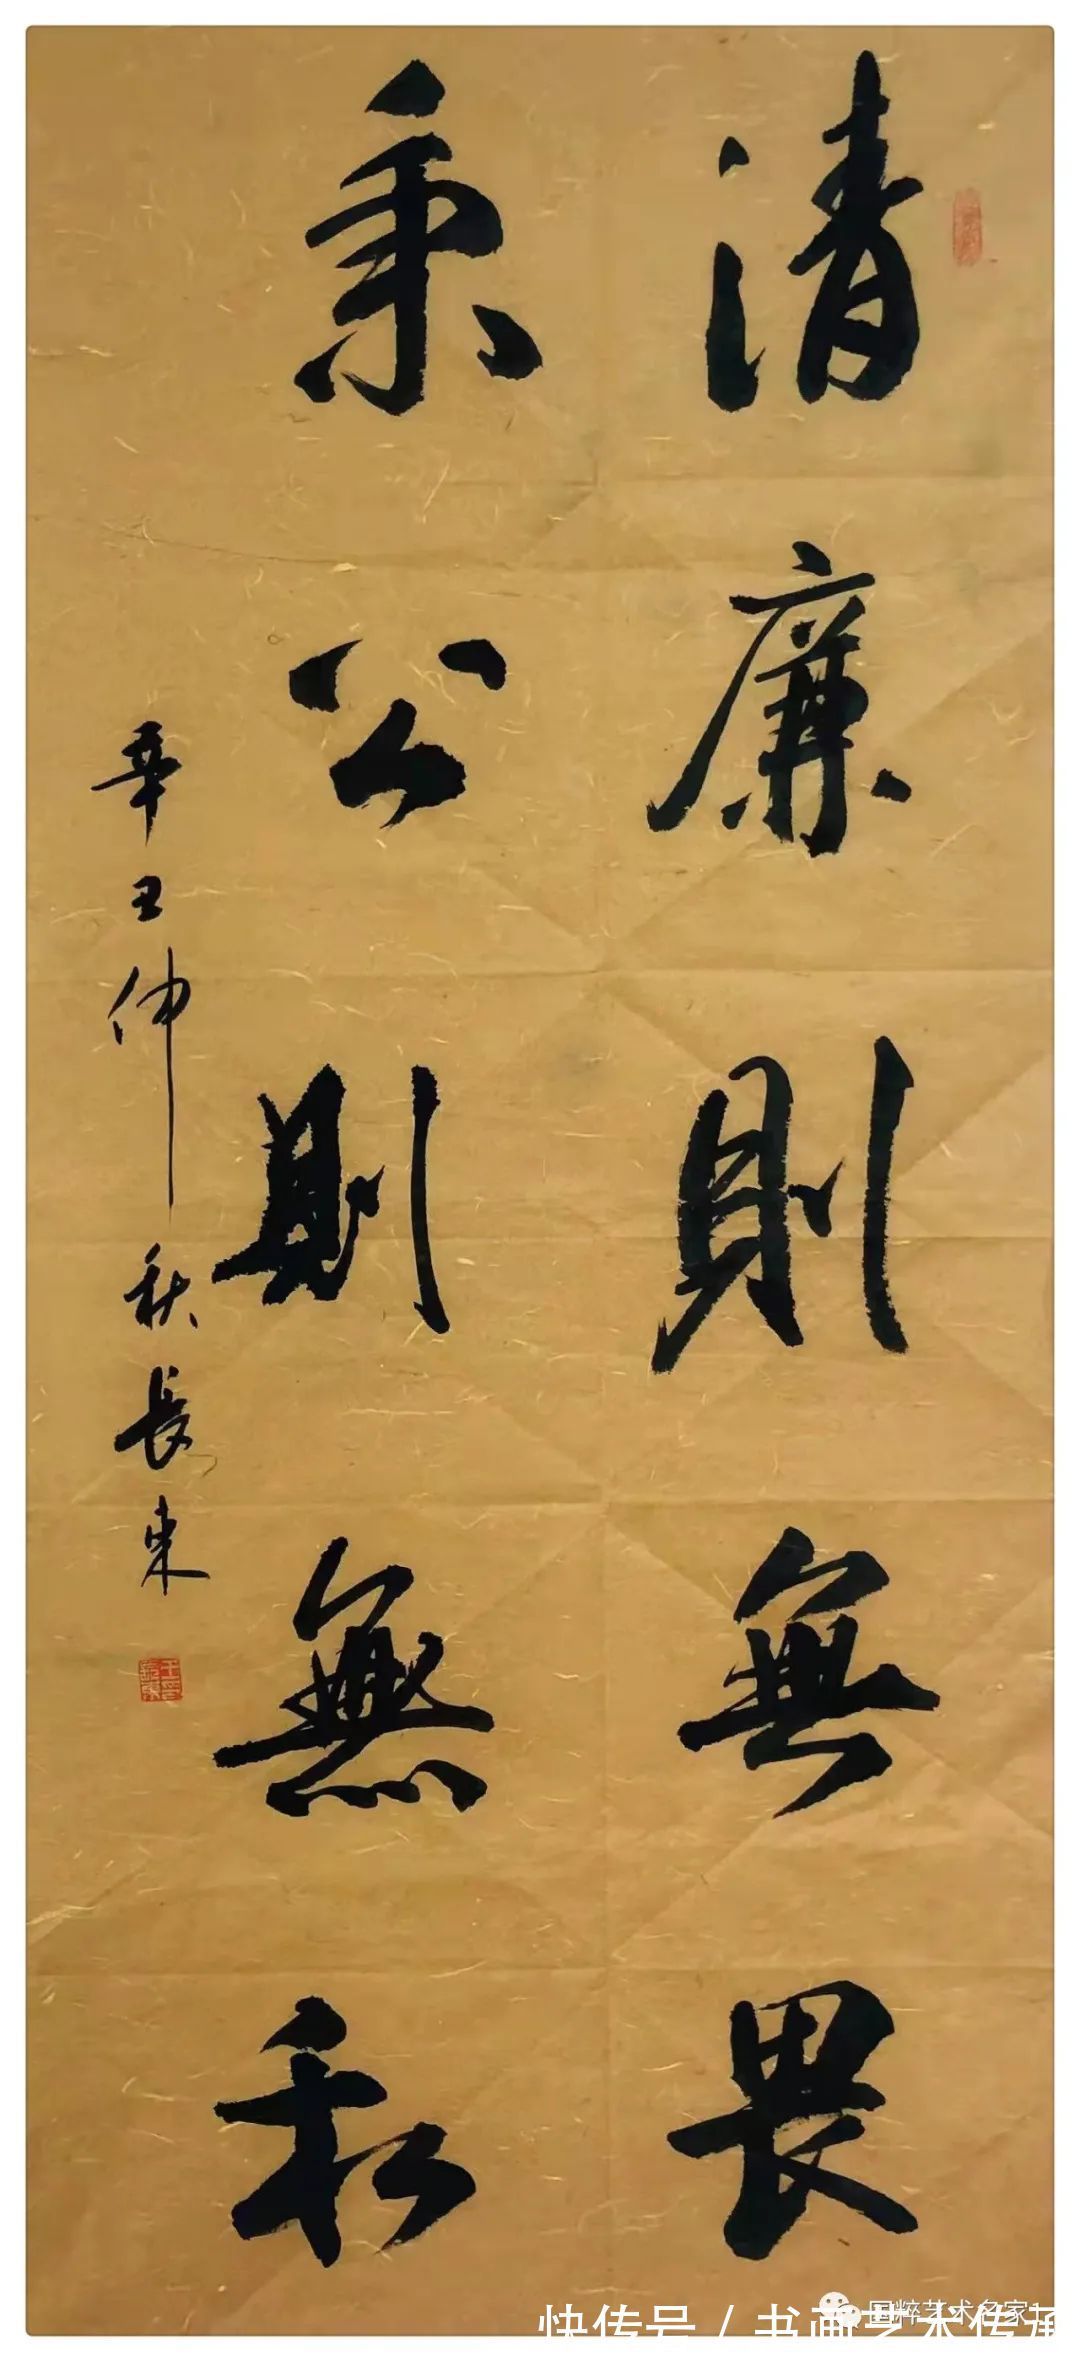 清廉則無畏
秉公則無私
辛丑仲秋長東
国粹艺术名家
快传号 / 书画艺术传承